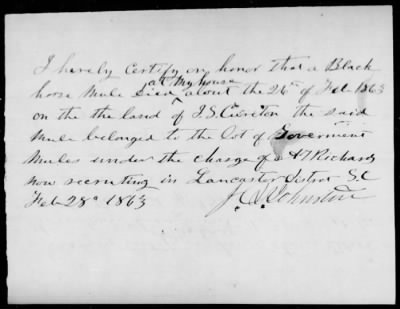 I hereby Certify on honor that a Black
at My house
horse Mule Died about the 26th of Feb 1863
on the the land of J.S. Cureton the said
Mule belonged to the Lot of Goverment
Mules under the charge of A T Richards
now recruiting in Lancaster District S.C
Feb 28th 1863
Johnston